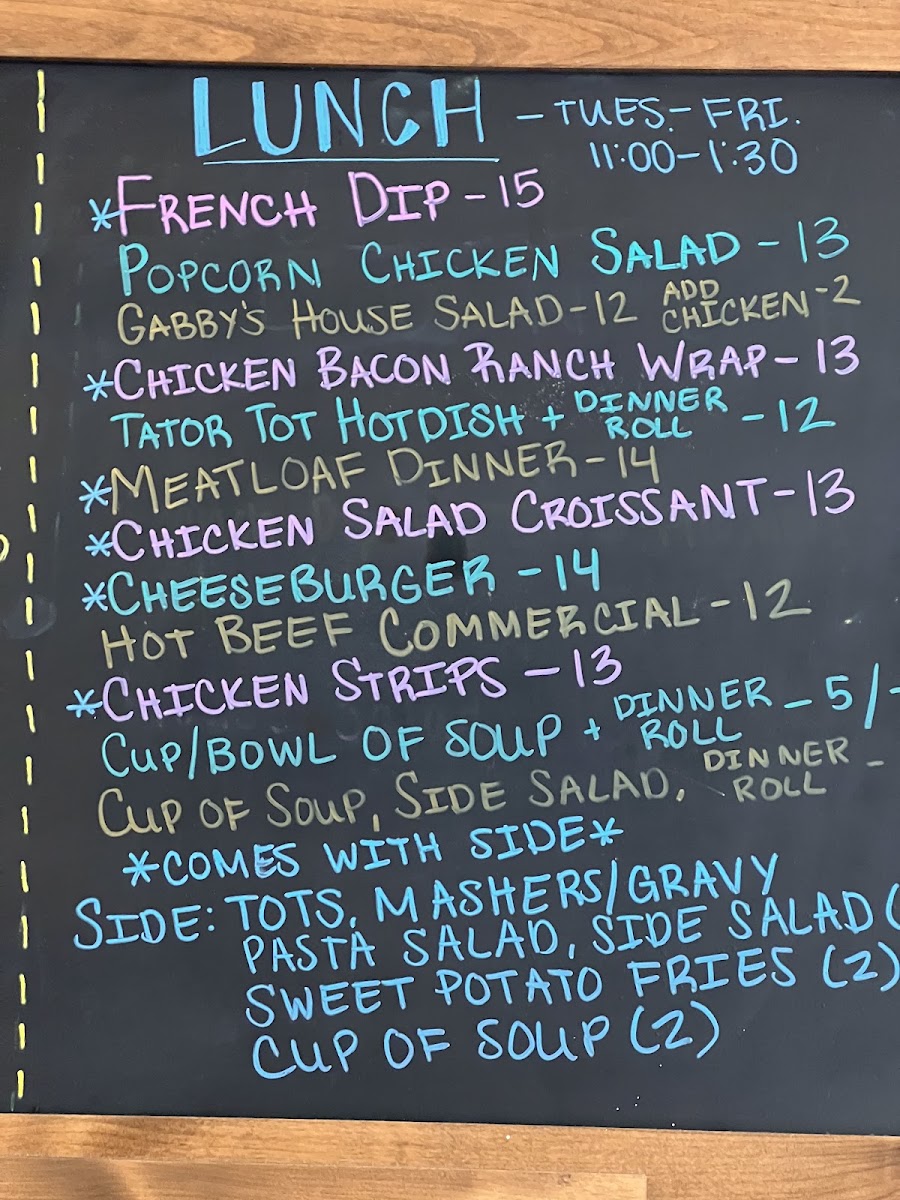 LUNCH - TUES.- FRI.
11:00-1:30
*FRENCH DIP - 15
POPCORN CHICKEN SALAD - 13
GABBY'S HOUSE SALAD - 12 ADD CHICKEN - 2
*CHICKEN BACON RANCH WRAP - 13
TATOR TOT HOTDISH + DINNER ROLL - 12
*MEATLOAF DINNER - 14
*CHICKEN SALAD CROISSANT - 13
*CHEESEBURGER - 14
HOT BEEF COMMERCIAL - 12
*CHICKEN STRIPS - 13
CUP/BOWL OF SOUP + DINNER ROLL - 5/
CUP OF SOUP, SIDE SALAD, DINNER ROLL -
*COMES WITH SIDE*
SIDE: TOTS, MASHERS/GRAVY
PASTA SALAD, SIDE SALAD (
SWEET POTATO FRIES (2)
CUP OF SOUP (2)